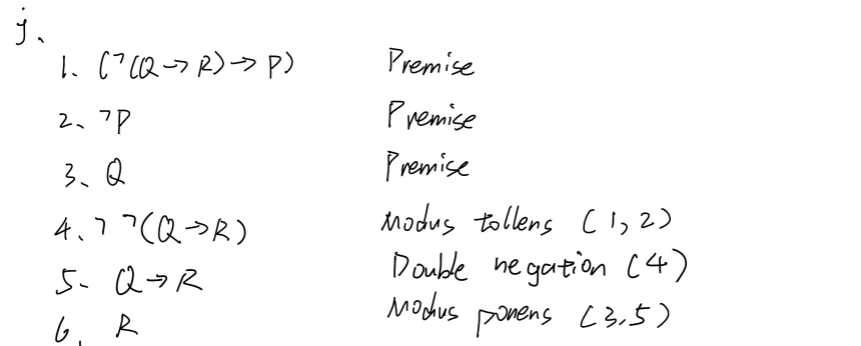 j、
1、(¬(Q→R)→P) Premise
2、¬P Premise
3、Q Premise
4、¬¬(Q→R) Modus tollens (1,2)
5- Q→R Double negation (4)
6、R Modus ponens (3,5)